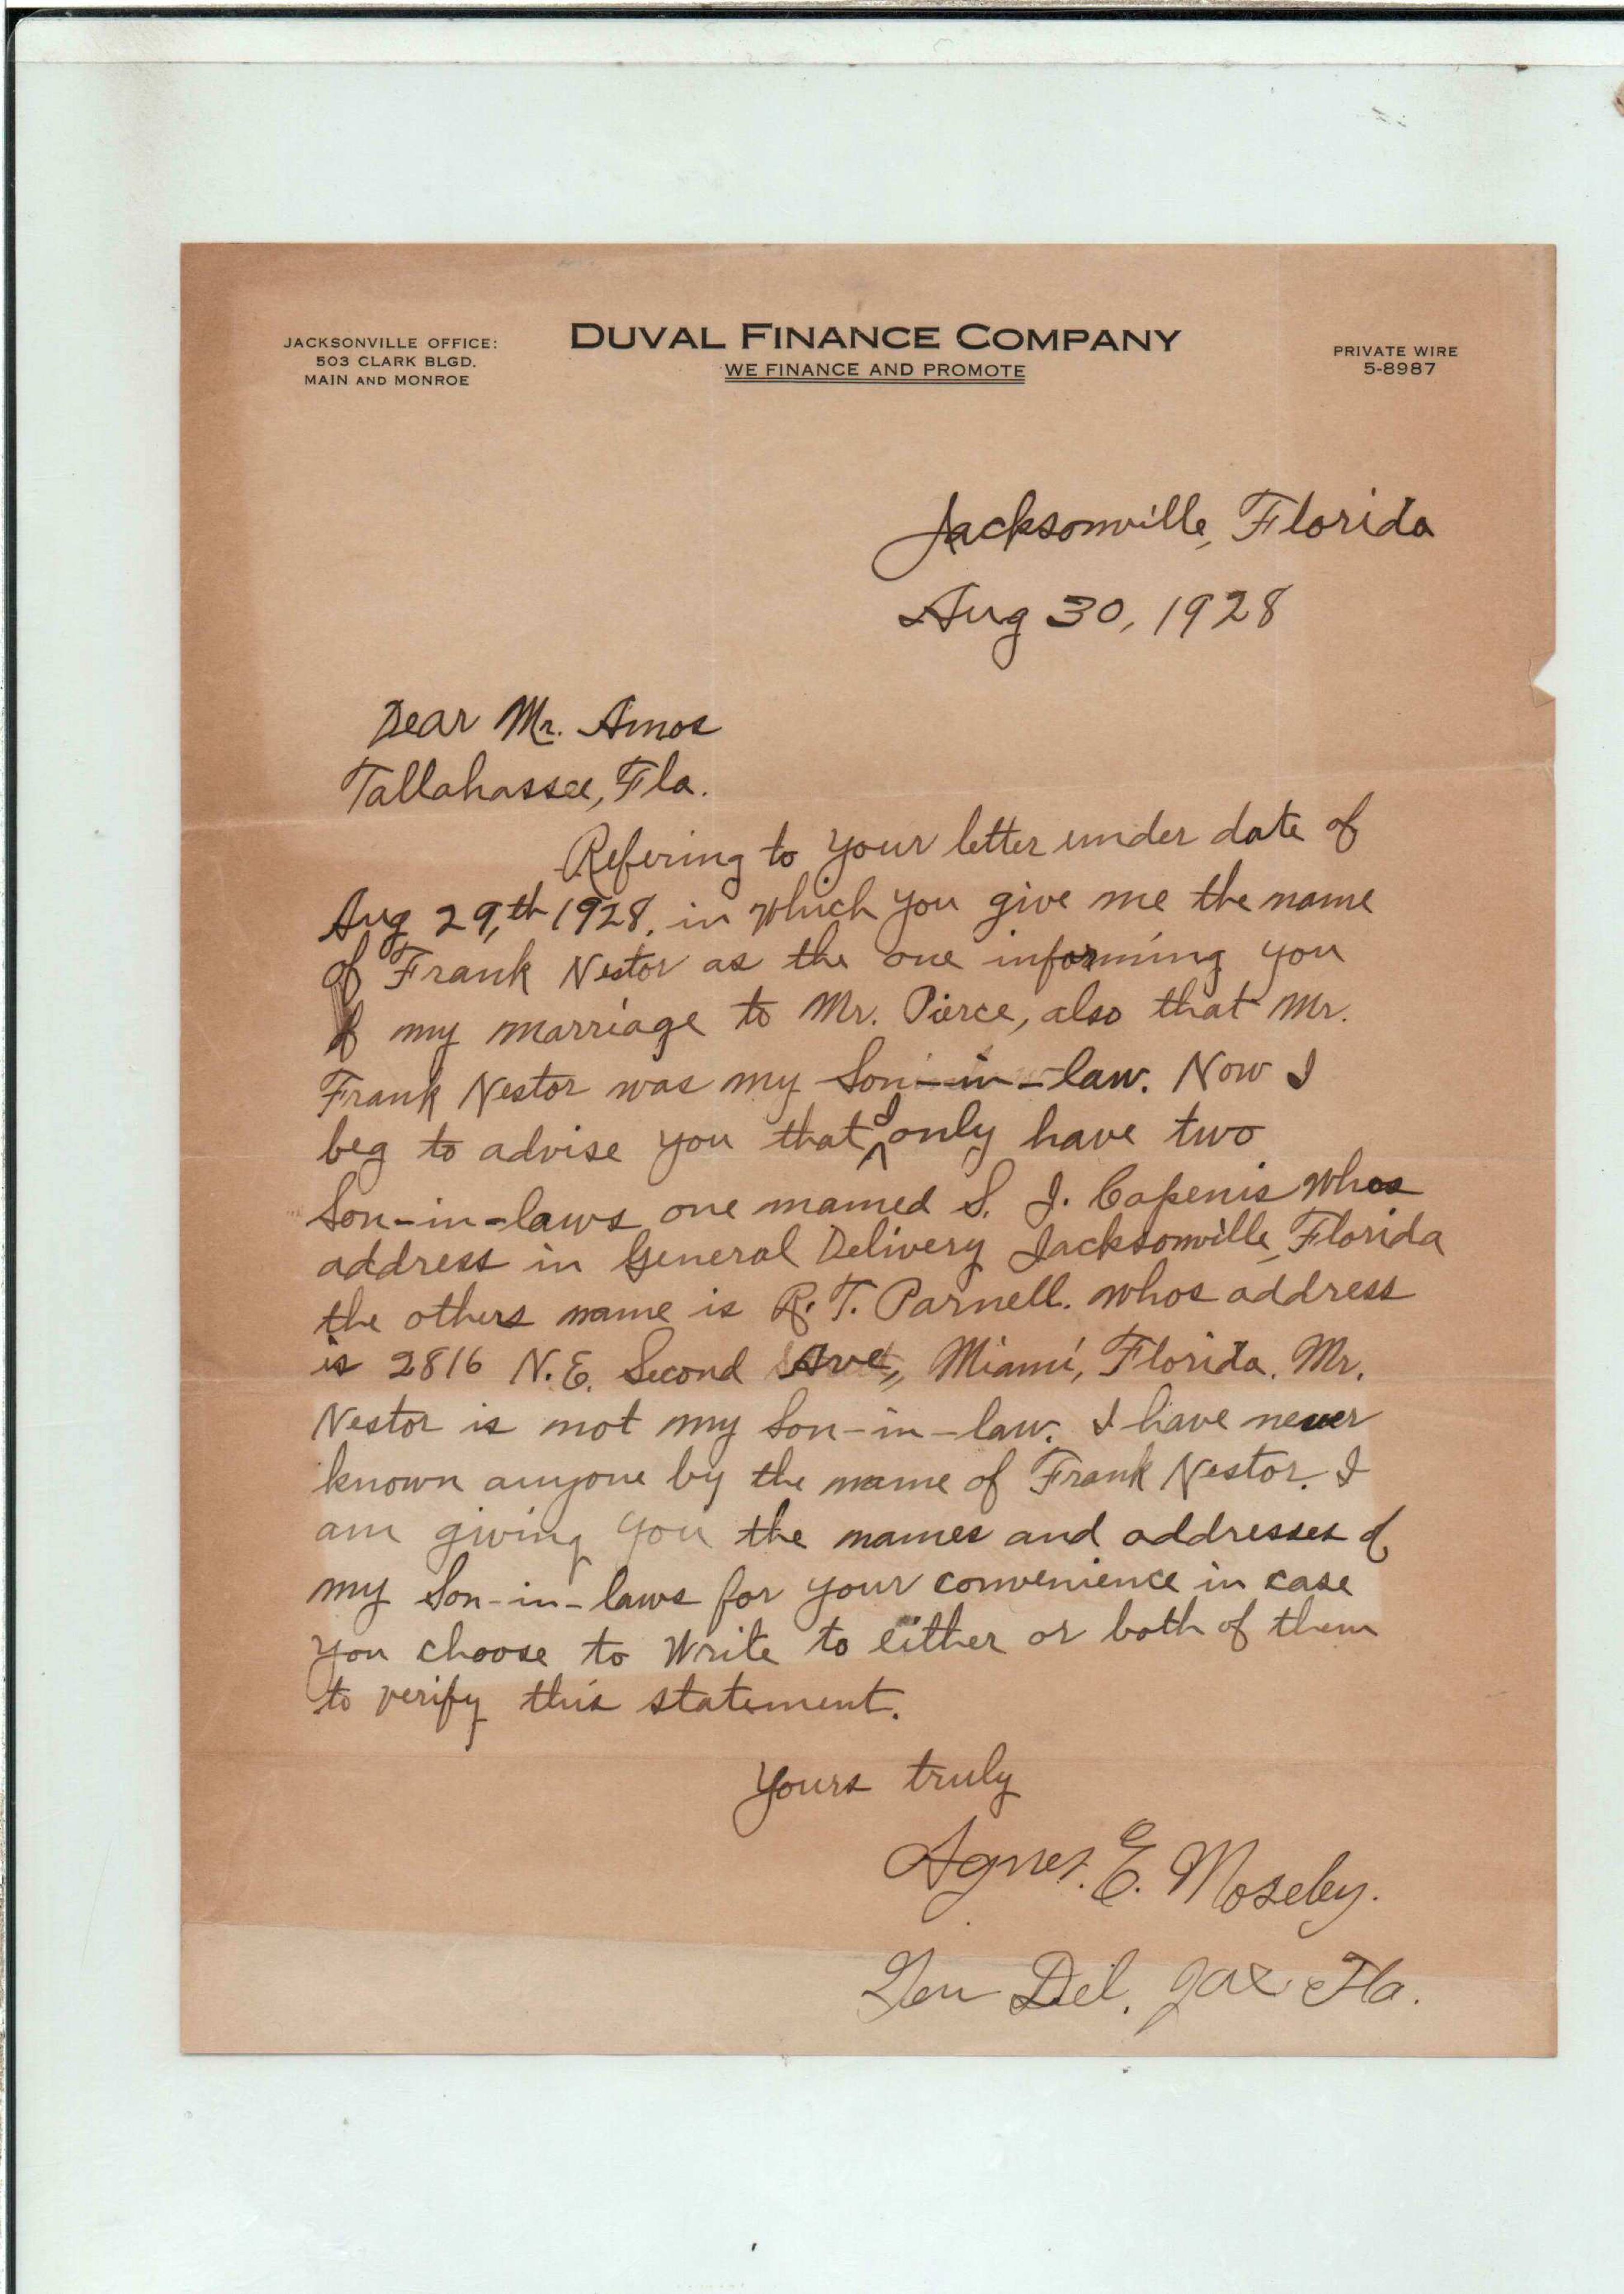 JACKSONVILLE OFFICE:
503 CLARK BLGD.
MAIN AND MONROE
DUVAL FINANCE COMPANY
WE FINANCE AND PROMOTE
PRIVATE WIRE
5-8987
Jacksonville, Florida
Aug 30, 1928
Dear Mr. Amos
Tallahassee, Fla.
Refering to your letter under date of
Aug 29,th 1928. in which you give me the name
of Frank Nestor as the one informing you
of my marriage to Mr. Pierce, also that Mr.
Frank Nestor was my Son-in-law. Now I
beg to advise you that I only have two
Son-in-laws one named S. J. Capenis whos
address in General Delivery Jacksonville, Florida
the others name is R. T. Parnell. whos address
is 2816 N.E. Second Ave., Miami, Florida. Mr.
Nestor is not my Son-in-law. I have never
known anyone by the name of Frank Nestor. I
am giving you the names and addresses of
my Son-in-laws for your convenience in case
you choose to write to either or both of them
to verify this statement.
Yours truly
Agnes. E. Moseley.
Gen Del. Jax Fla.